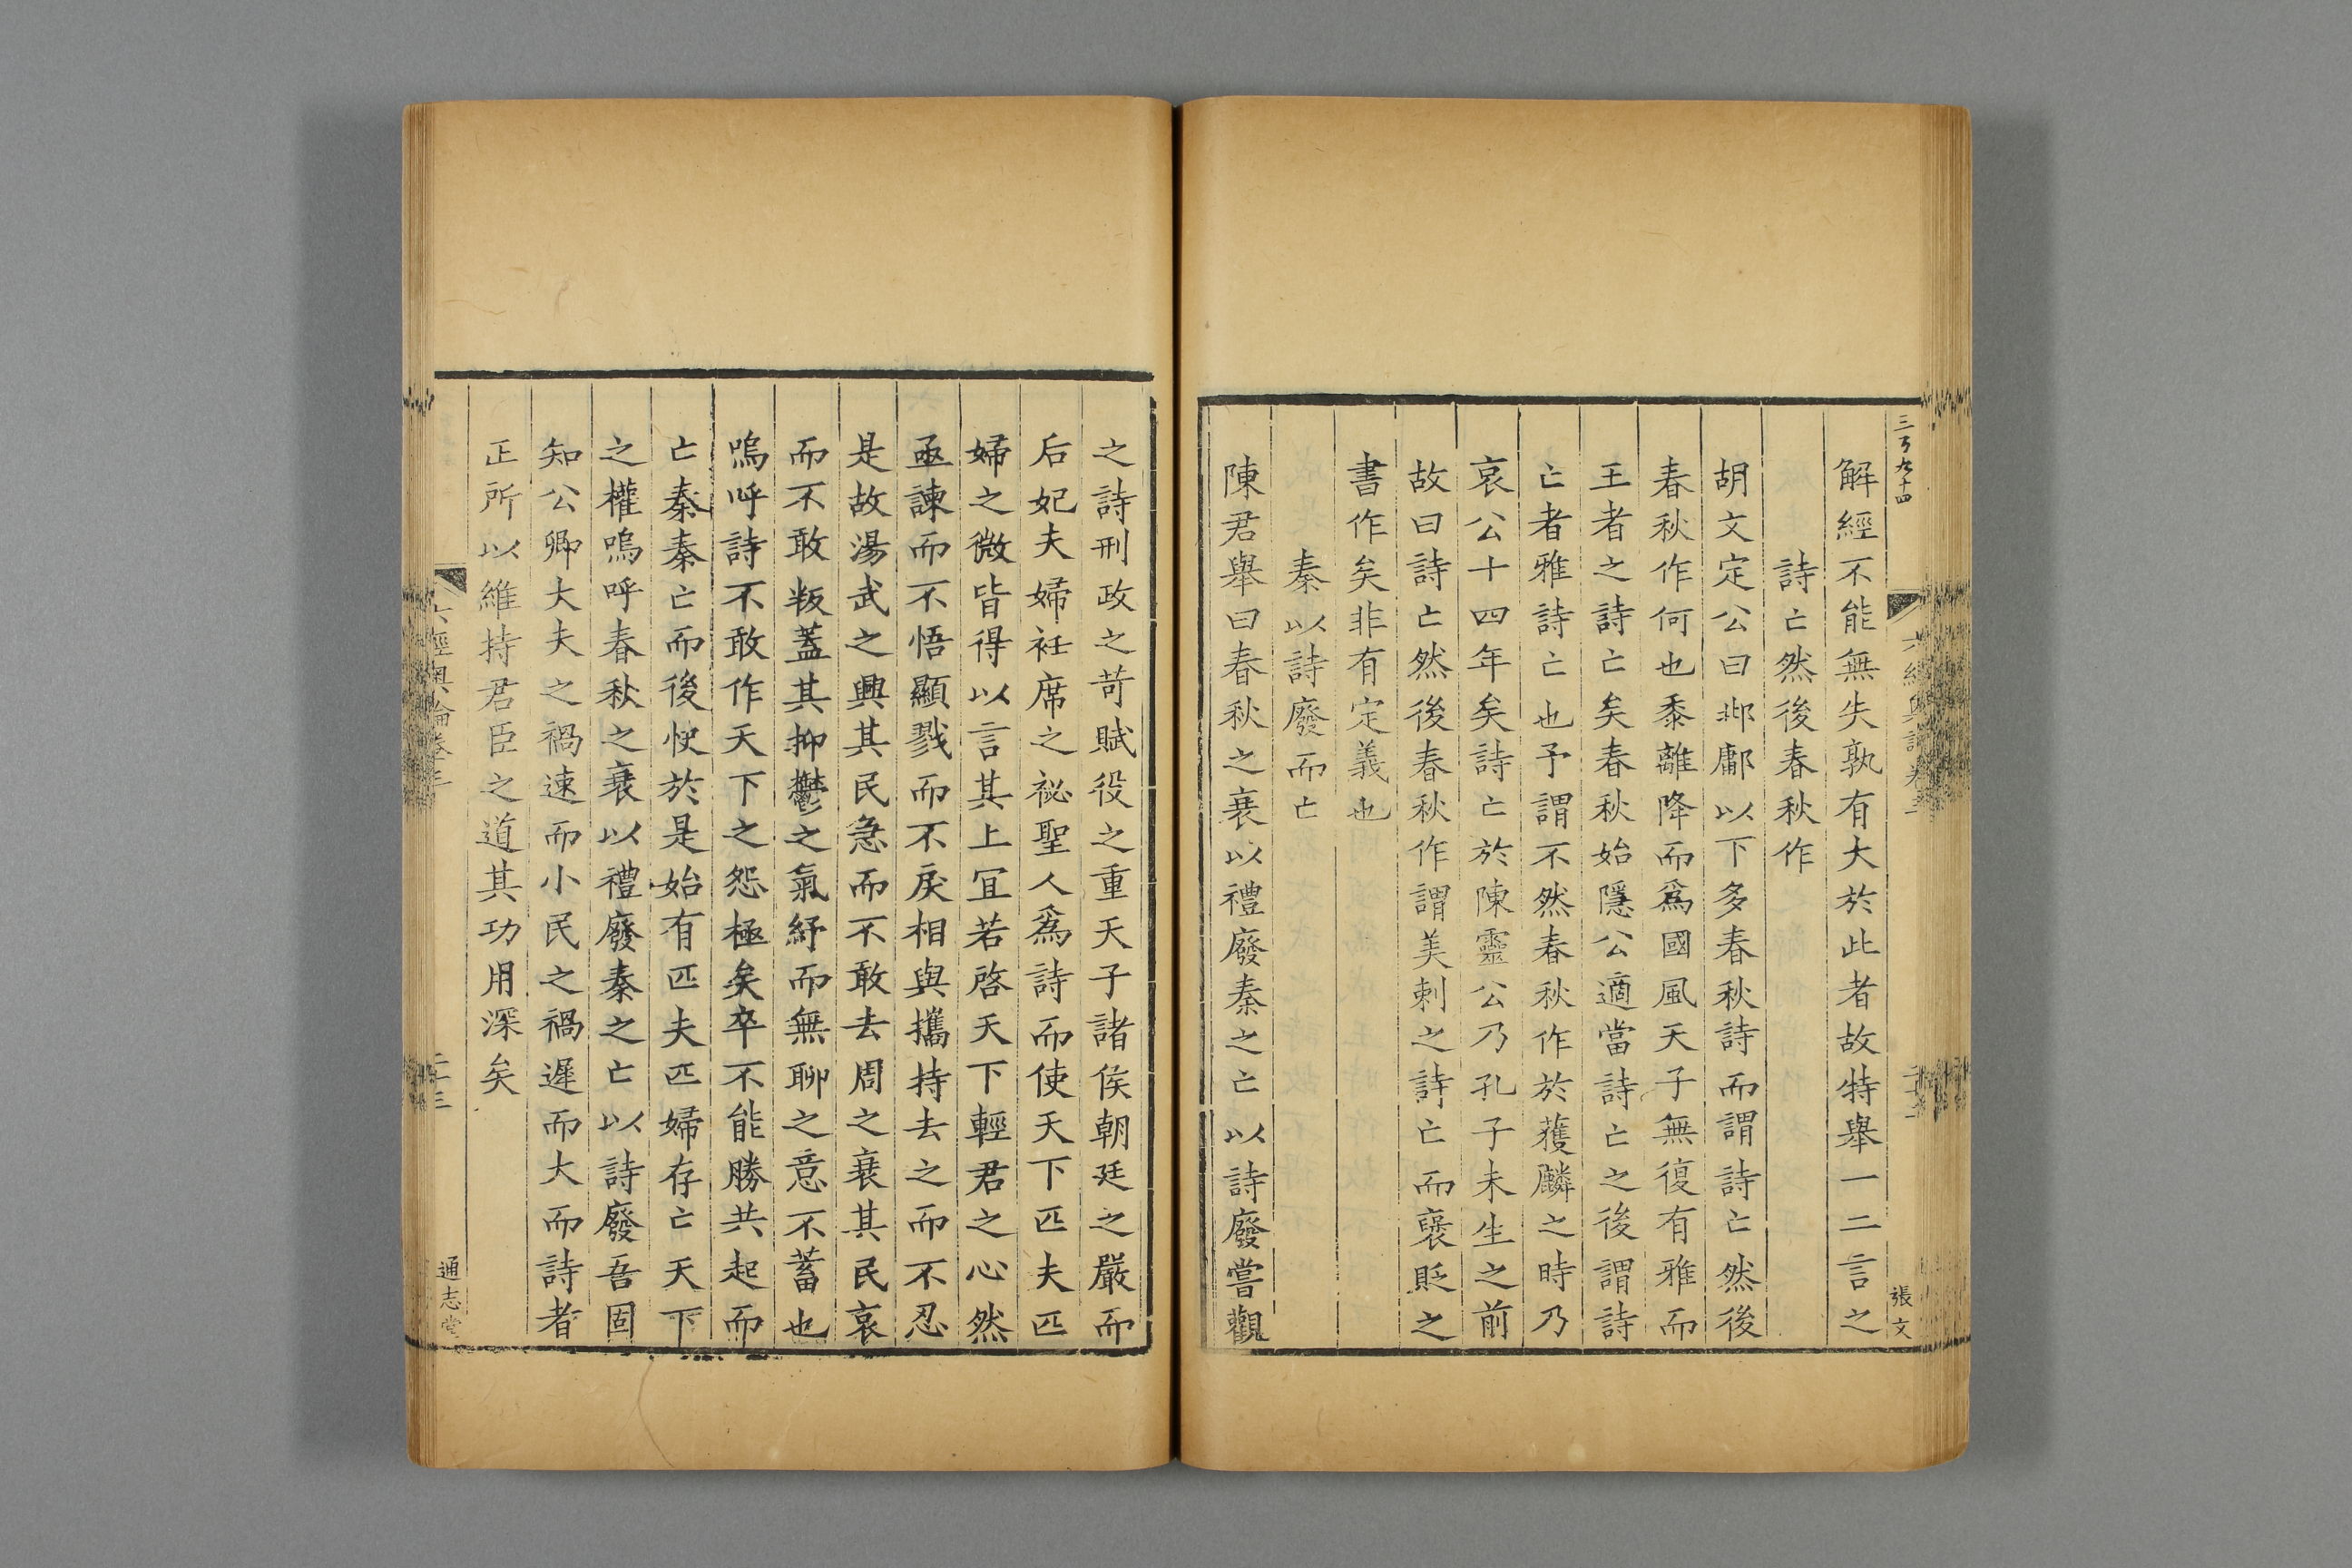 三百九十四
張文
解經不能無失孰有大於此者故特舉一二言之
詩亡然後春秋作
胡文定公曰邶鄘以下多春秋詩而謂詩亡然後
春秋作何也黍離降而爲國風天子無復有雅而
王者之詩亡矣春秋始隱公適當詩亡之後謂詩
亡者雅詩亡也予謂不然春秋作於獲麟之時乃
哀公十四年矣詩亡於陳靈公乃孔子未生之前
故曰詩亡然後春秋作謂美刺之詩亡而襃貶之
書作矣非有定義也
秦以詩廢而亡
陳君舉曰春秋之衰以禮廢秦之亡以詩廢嘗觀
之詩刑政之苛賦役之重天子諸侯朝廷之嚴而
后妃夫婦衽席之祕聖人爲詩而使天下匹夫匹
婦之微皆得以言其上宜若啓天下輕君之心然
亟諫而不悟顯戮而不戾相與攜持去之而不忍
是故湯武之興其民急而不敢去周之衰其民哀
而不敢叛蓋其抑鬱之氣紓而無聊之意不蓄也
嗚呼詩不敢作天下之怨極矣卒不能勝共起而
亡秦秦亡而後快於是始有匹夫匹婦存亡天下
之權嗚呼春秋之衰以禮廢秦之亡以詩廢吾固
知公卿大夫之禍速而小民之禍遲而大而詩者
正所以維持君臣之道其功用深矣
六經奧論卷三
二十三
通志堂